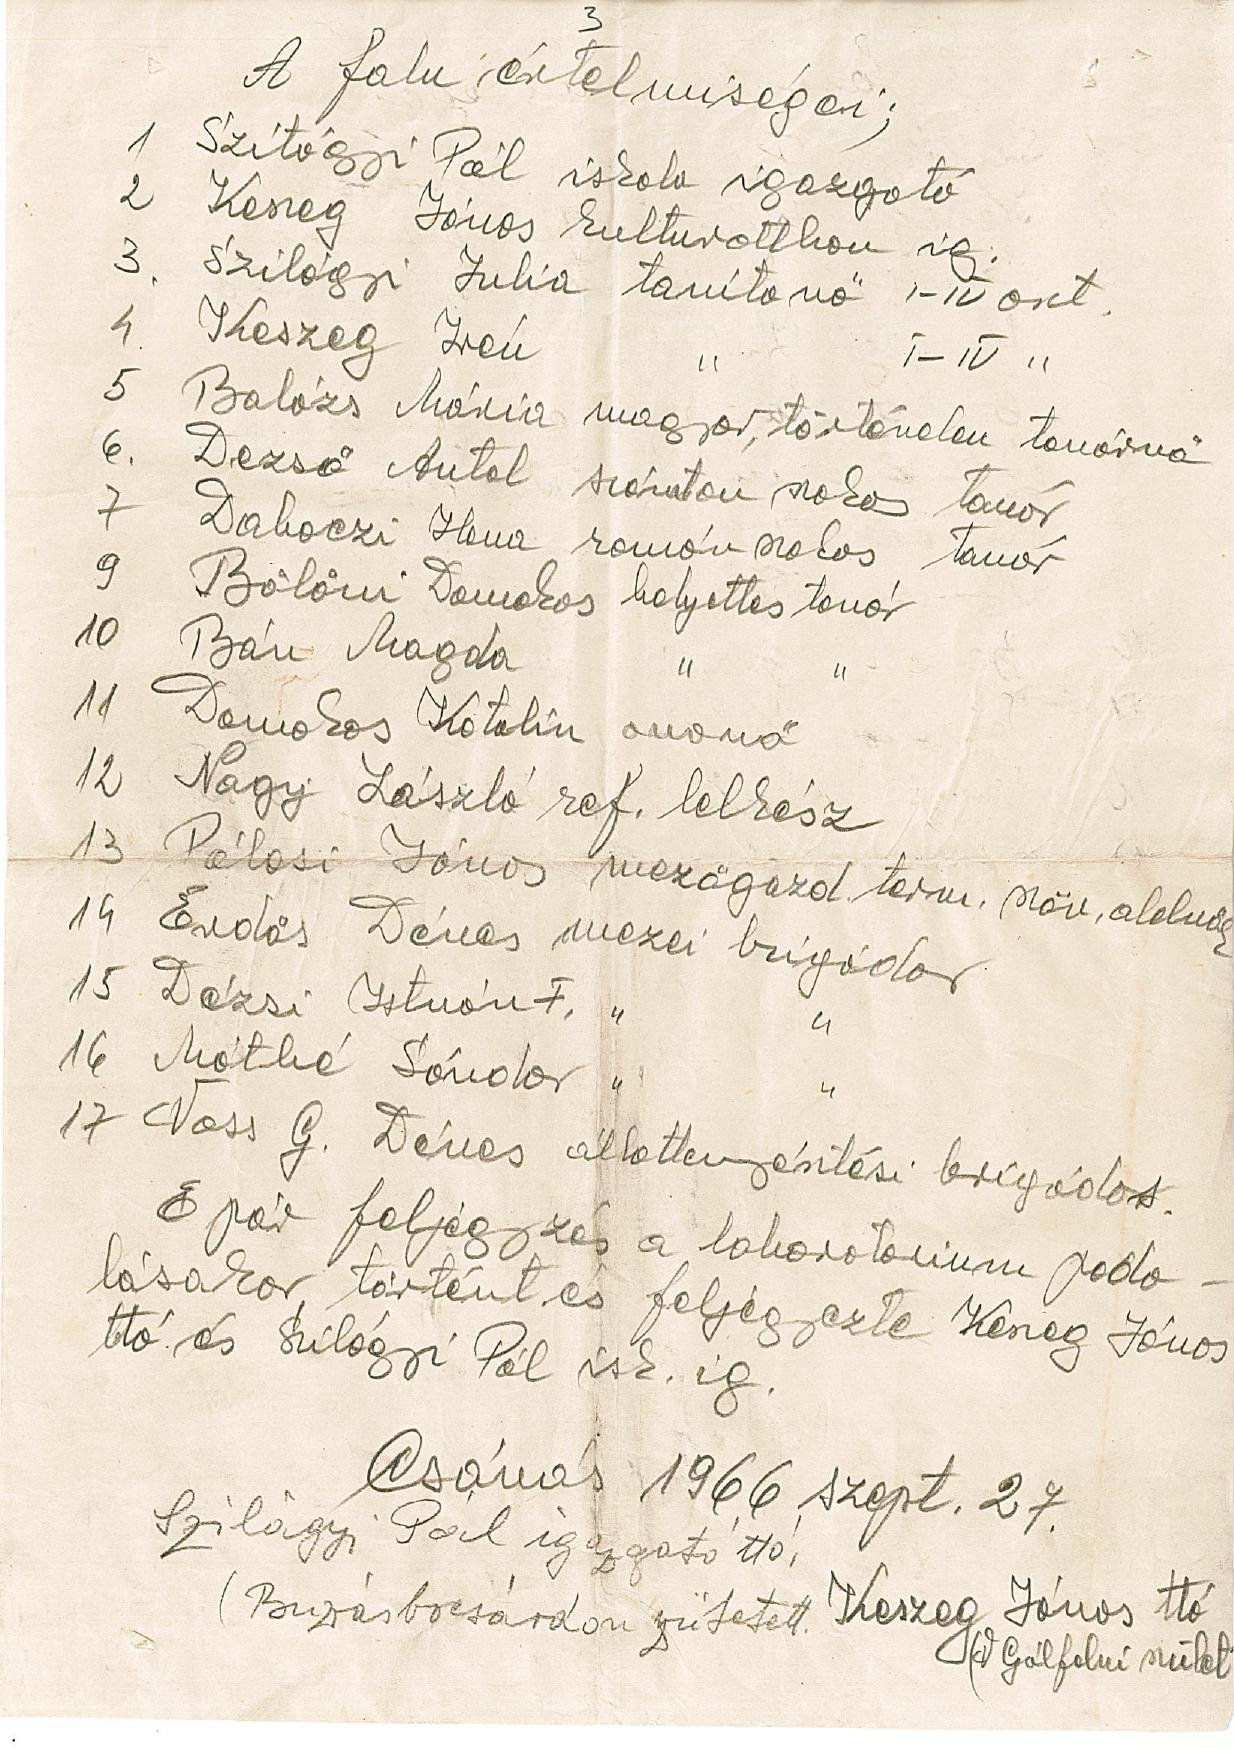 3
A falu értelmiségei;
1 Szilágyi Pál iskola igazgató
2 Keszeg János kulturotthon ig.
3. Szilágyi Julia tanitonő I-IV oszt.
4. Keszeg Irén " I-IV "
5 Balázs Mária magyar, történelem tanárnő
6. Dezső Antal számtan szakos tanár
7 Daboczi Ilona román szakos tanár
9 Bölöni Domokos helyettes tanár
10 Bán Magda " "
11 Domokos Katalin ovonő
12 Nagy László ref. lelkész
13 Pálosi János mezőgazd. term. szöv. alelnök
14 Erdős Dénes mezei brigádos
15 Dézsi István F. " "
16 Máthé Sándor " "
17 Vass G. Dénes állattenyésztési brigádos.
E pár feljegyzés a laboratorium pado-
lásakor történt és feljegyezte Keszeg János
ttó és Szilágyi Pál isk. ig.
Csávás 1966 szept. 27.
Szilágyi Pál igazgató ttó,
(Buzásbocsárdon született. Keszeg János ttó
Gálfalvi szület